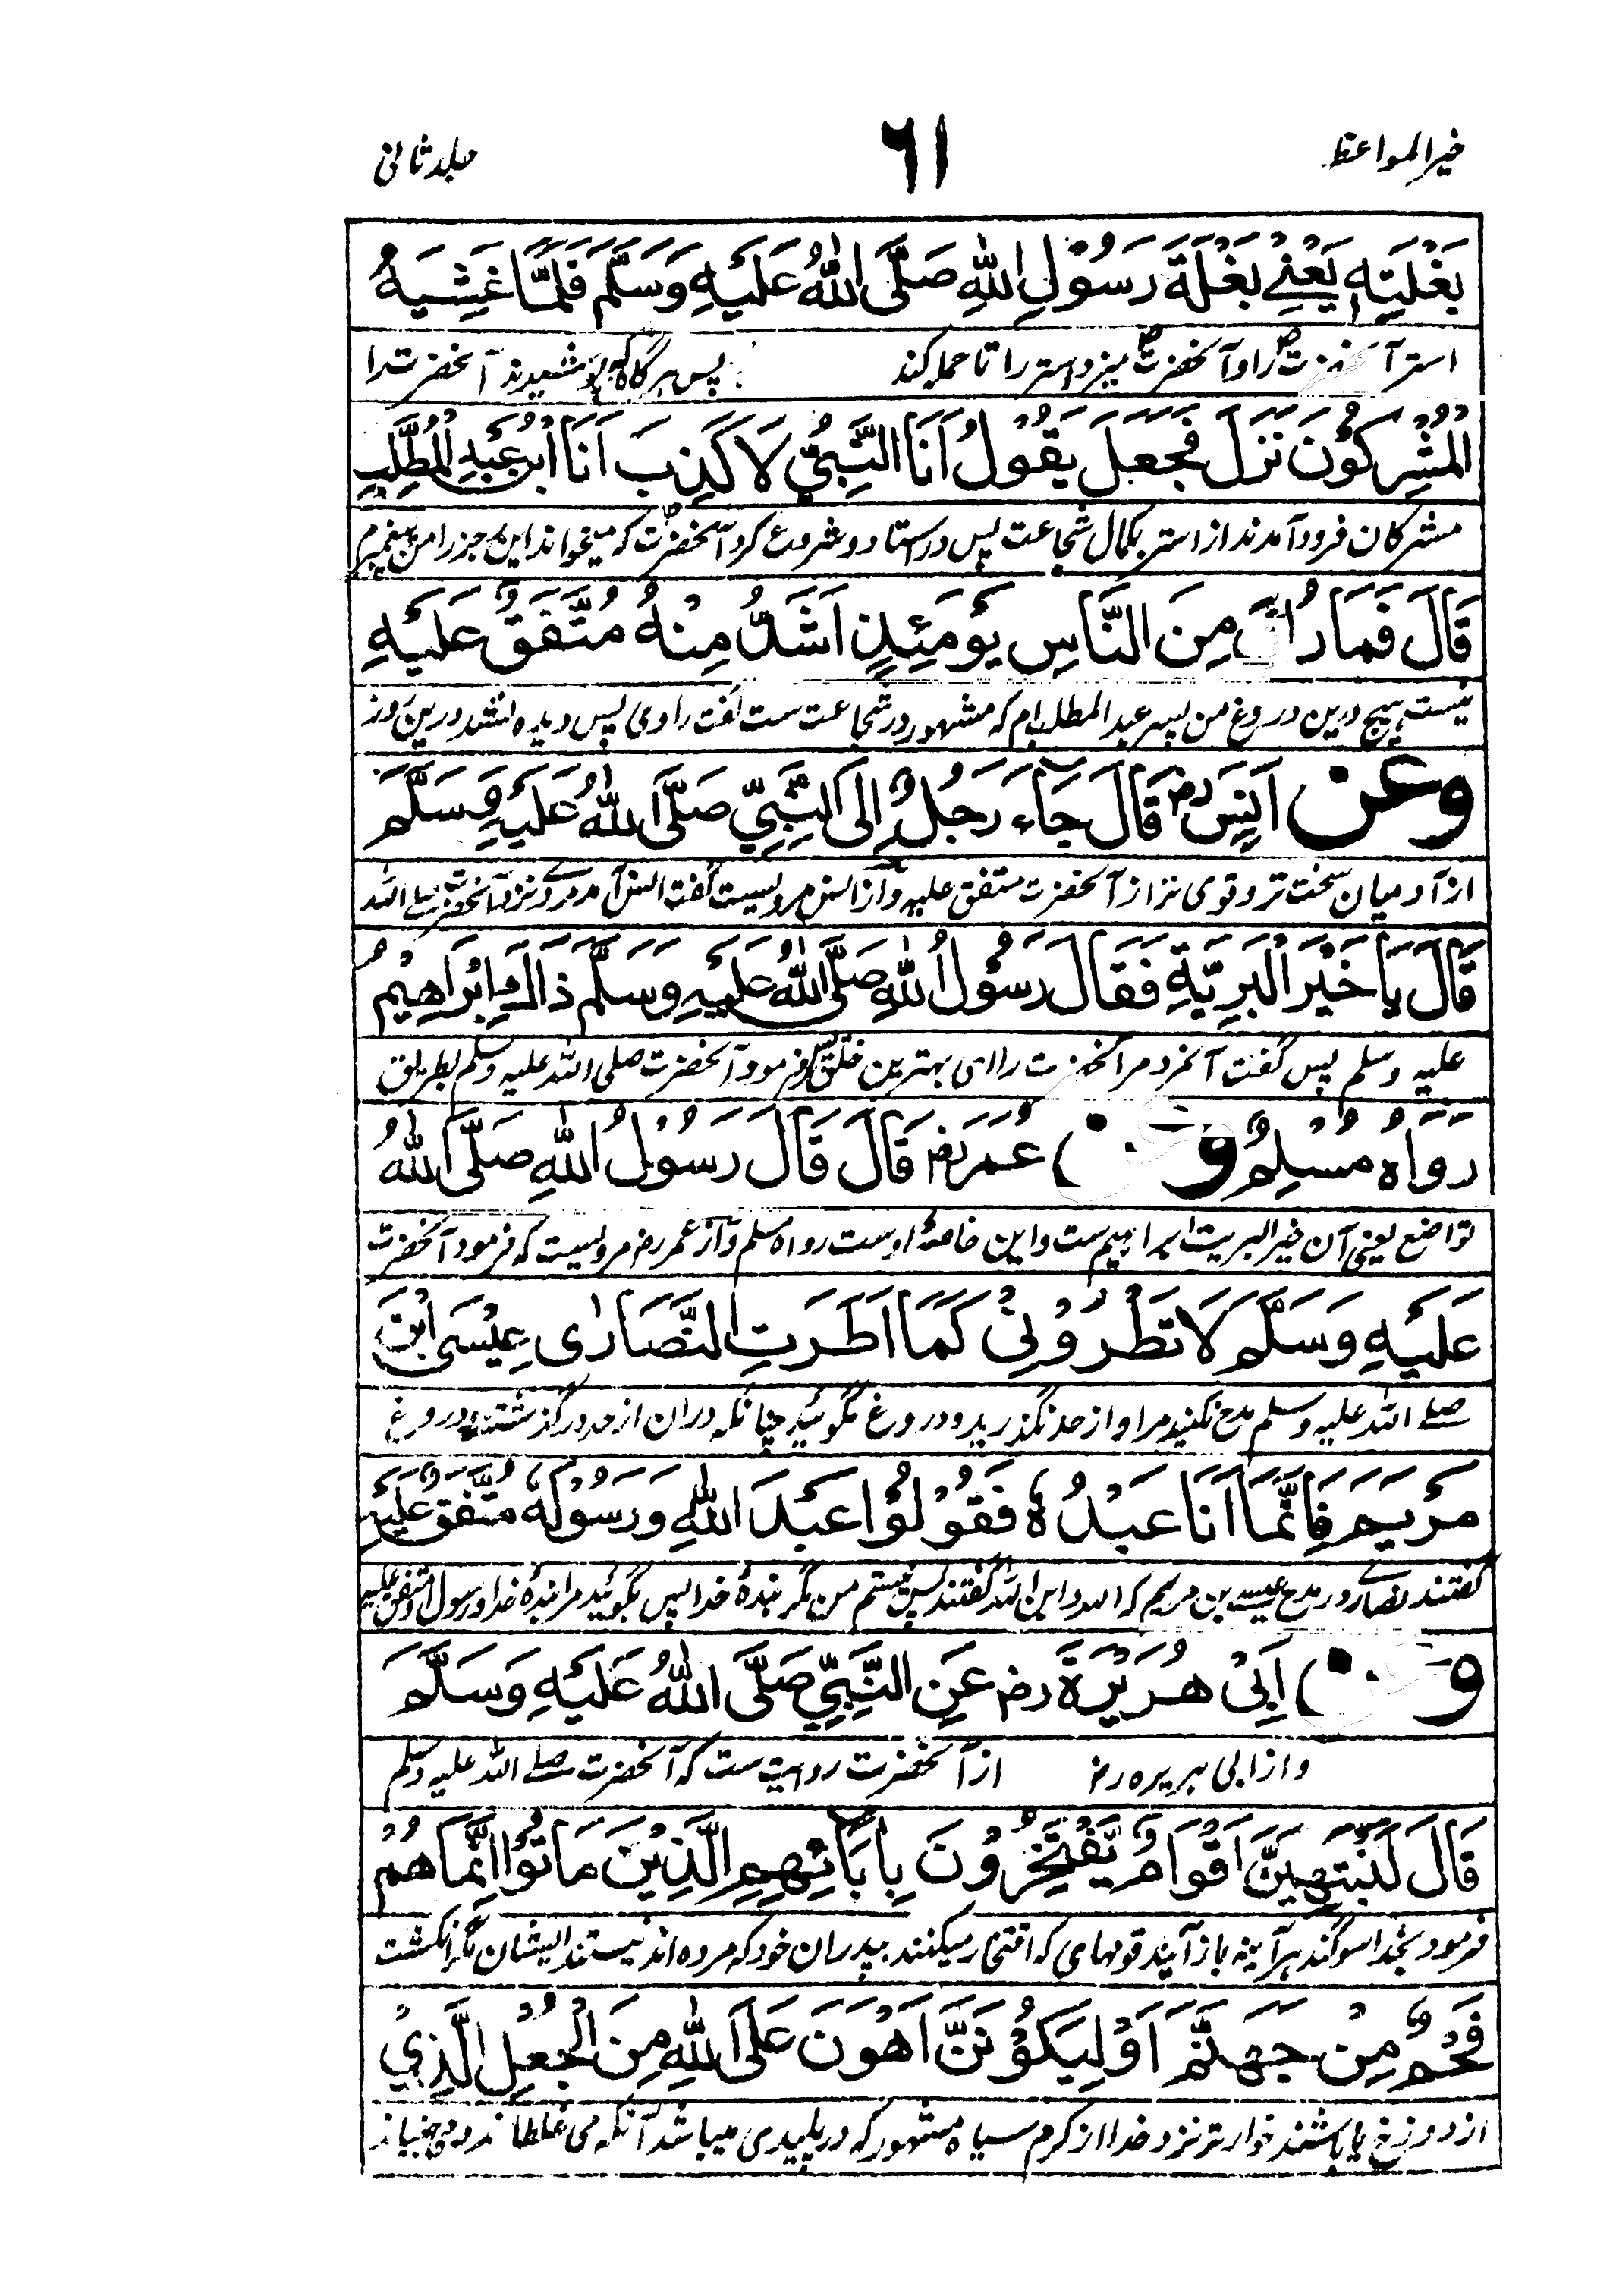 خیر المواعظ
۶۱
جلد ثانی
بَغْلَتِهٖ يَعْنِي بَغْلَةَ رَسُوْلِ اللّٰهِ صَلَّى اللّٰهُ عَلَيْهِ وَسَلَّمَ فَلَمَّا غَشِيَهُ
استر آنحضرت را و آنحضرت میزد استر را تا حمله کند پس هرگاه که پوشیدند آنحضرت را
الْمُشْرِكُوْنَ نَزَلَ فَجَعَلَ يَقُوْلُ اَنَا النَّبِيُّ لَا كَذِبَ اَنَا ابْنُ عَبْدِ الْمُطَّلِبِ
مشرکان فرود آمدند از استر بکمال شجاعت پس در استاد و شروع کرد آنحضرت که میخواند این رجز را من پیغمبرم
قَالَ فَمَا رُاىَ مِنَ النَّاسِ يَوْمَئِذٍ اَشَدُّ مِنْهُ مُتَّفَقٌ عَلَيْهِ
نیست هیچ درین دروغ من پسر عبد المطلب ام که مشهور در شجاعت ست گفت راوی پس دیده نشد درین روز
وَعَنْ اَنَسٍ رض قَالَ جَاءَ رَجُلٌ اِلَى النَّبِيِّ صَلَّى اللّٰهُ عَلَيْهِ وَسَلَّمَ
از آدمیان سخت تر و قوی تر از آنحضرت متفق علیه و از انس مرویست گفت انس آمد مردے نزد آنحضرت صلے الله
قَالَ يَا خَيْرَ الْبَرِيَّةِ فَقَالَ رَسُوْلُ اللّٰهِ صَلَّى اللّٰهُ عَلَيْهِ وَسَلَّمَ ذَاكَ اِبْرَاهِيْمُ
علیه وسلم پس گفت آنمرد مر آنحضرت را ای بهترین خلق پس فرمود آنحضرت صلی الله علیه وسلم بطریق
رَوَاهُ مُسْلِمٌ وَعَنْ عُمَرَ رض قَالَ قَالَ رَسُوْلُ اللّٰهِ صَلَّى اللّٰهُ
تواضع یعنی آن خیر البریت ابراهیم ست و این خاصۀ اوست رواه مسلم و از عمر رض مرویست که فرمود آنحضرت
عَلَيْهِ وَسَلَّمَ لَا تَطْرُوْنِيْ كَمَا اَطْرَتِ النَّصَارٰى عِيْسَى ابْنَ
صلے الله علیه وسلم مدح نکنید مرا و از حد نگذرید و دروغ نگوئید چنانکه دران از حد درگذشتند و دروغ
مَرْيَمَ فَاِنَّمَا اَنَا عَبْدُهٗ فَقُوْلُوْا عَبْدَ اللّٰهِ وَرَسُوْلَهٗ مُتَّفَقٌ عَلَيْهِ
گفتند نصارے در مدح عیسے بن مریم که الله و ابن الله گفتند پس نیستم من مگر بندۀ خدا پس بگوئید مرا بندۀ خدا و رسول او متفق علیه
وَعَنْ اَبِيْ هُرَيْرَةَ رض عَنِ النَّبِيِّ صَلَّى اللّٰهُ عَلَيْهِ وَسَلَّمَ
و از ابی هریره رض از آنحضرت روایت ست که آنحضرت صلے الله علیه وسلم
قَالَ لَيَنْتَهِيَنَّ اَقْوَامٌ يَّفْتَخِرُوْنَ بِاٰبَائِهِمِ الَّذِيْنَ مَاتُوْا اِنَّمَا هُمْ
فرمود بخدا سوگند هر آینه باز آیند قومهای که افتخار میکنند بپدران خود که مرده اند نیستند ایشان مگر انگشت
فَحْمٌ مِّنْ جَهَنَّمَ اَوْ لَيَكُوْنَنَّ اَهْوَنَ عَلَى اللّٰهِ مِنَ الْجُعَلِ الَّذِيْ
از دوزخ یا باشند خوارتر نزد خدا از کرم سیاه مشهور که در پلیدی میباشد آنکه می غلطاند و می جنباند